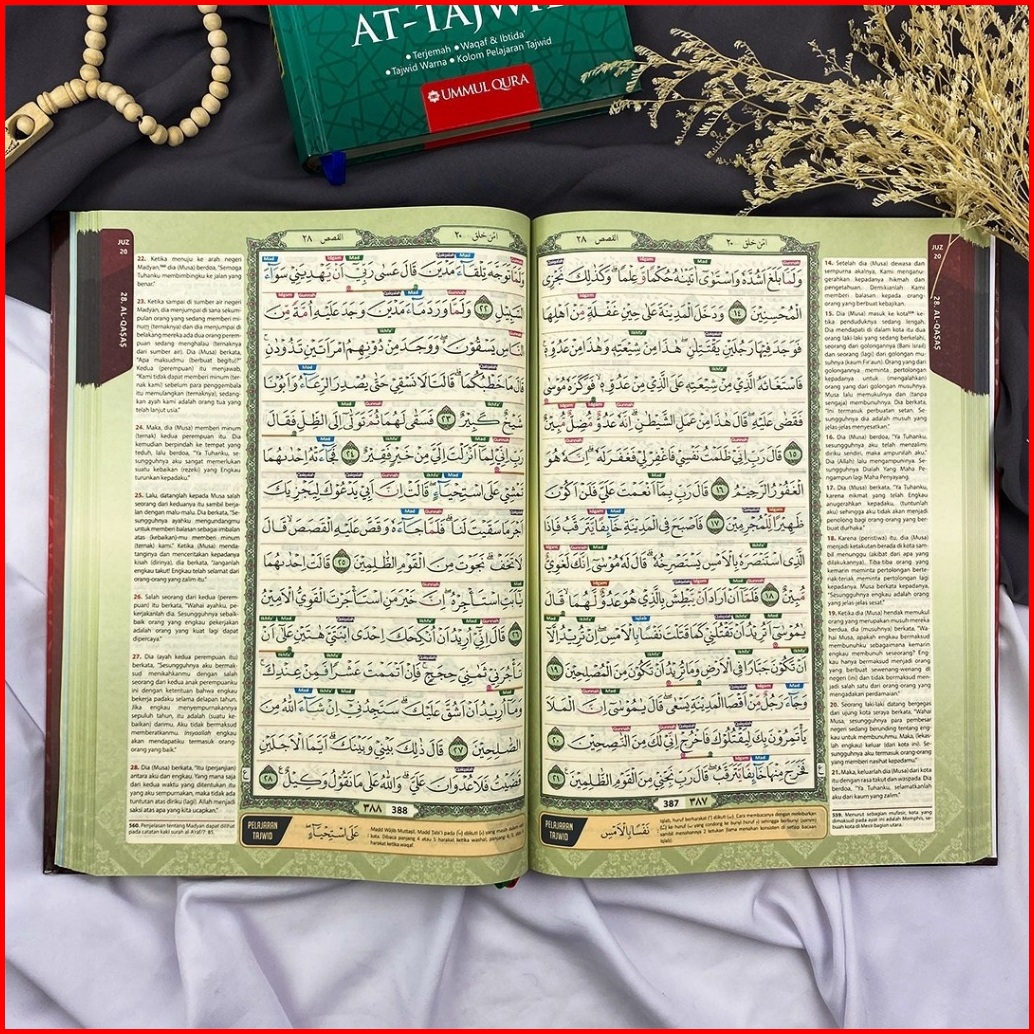 AT-TAJWID
• Terjemah • Waqaf & Ibtida'
• Tajwid Warna • Kolom Pelajaran Tajwid
UMMUL QURA
امن خلق ٢٠
القصص ٢٨
وَلَمَّا بَلَغَ اَشُدَّهٗ وَاسْتَوٰىٓ اٰتَيْنٰهُ حُكْمًا وَّعِلْمًاۗ وَكَذٰلِكَ نَجْزِى
الْمُحْسِنِيْنَ ١٤ وَدَخَلَ الْمَدِيْنَةَ عَلٰى حِيْنِ غَفْلَةٍ مِّنْ اَهْلِهَا
فَوَجَدَ فِيْهَا رَجُلَيْنِ يَقْتَتِلٰنِۖ هٰذَا مِنْ شِيْعَتِهٖ وَهٰذَا مِنْ عَدُوِّهٖۚ
فَاسْتَغَاثَهُ الَّذِيْ مِنْ شِيْعَتِهٖ عَلَى الَّذِيْ مِنْ عَدُوِّهٖۙ فَوَكَزَهٗ مُوْسٰى
فَقَضٰى عَلَيْهِۖ قَالَ هٰذَا مِنْ عَمَلِ الشَّيْطٰنِۗ اِنَّهٗ عَدُوٌّ مُّضِلٌّ مُّبِيْنٌ
١٥ قَالَ رَبِّ اِنِّيْ ظَلَمْتُ نَفْسِيْ فَاغْفِرْ لِيْ فَغَفَرَ لَهٗۗ اِنَّهٗ هُوَ
الْغَفُوْرُ الرَّحِيْمُ ١٦ قَالَ رَبِّ بِمَآ اَنْعَمْتَ عَلَيَّ فَلَنْ اَكُوْنَ
ظَهِيْرًا لِّلْمُجْرِمِيْنَ ١٧ فَاَصْبَحَ فِى الْمَدِيْنَةِ خَاۤىِٕفًا يَّتَرَقَّبُ فَاِذَا
الَّذِى اسْتَنْصَرَهٗ بِالْاَمْسِ يَسْتَصْرِخُهٗۗ قَالَ لَهٗ مُوْسٰٓى اِنَّكَ لَغَوِيٌّ
مُّبِيْنٌ ١٨ فَلَمَّآ اَنْ اَرَادَ اَنْ يَّبْطِشَ بِالَّذِيْ هُوَ عَدُوٌّ لَّهُمَاۙ قَالَ
يٰمُوْسٰٓى اَتُرِيْدُ اَنْ تَقْتُلَنِيْ كَمَا قَتَلْتَ نَفْسًاۢ بِالْاَمْسِۖ اِنْ تُرِيْدُ اِلَّآ
اَنْ تَكُوْنَ جَبَّارًا فِى الْاَرْضِ وَمَا تُرِيْدُ اَنْ تَكُوْنَ مِنَ الْمُصْلِحِيْنَ ١٩
وَجَاۤءَ رَجُلٌ مِّنْ اَقْصَا الْمَدِيْنَةِ يَسْعٰىۖ قَالَ يٰمُوْسٰٓى اِنَّ الْمَلَاَ
يَأْتَمِرُوْنَ بِكَ لِيَقْتُلُوْكَ فَاخْرُجْ اِنِّيْ لَكَ مِنَ النّٰصِحِيْنَ ٢٠
فَخَرَجَ مِنْهَا خَاۤىِٕفًا يَّتَرَقَّبُۖ قَالَ رَبِّ نَجِّنِيْ مِنَ الْقَوْمِ الظّٰلِمِيْنَ ٢١
387 ٣٨٧
PELAJARAN
TAJWID
نَفْسًاۢ بِالْاَمْسِ
JUZ
20
28. AL-QASAS
14. Setelah dia (Musa) dewasa dan
sempurna akalnya, Kami menganu-
gerahkan kepadanya hikmah dan
pengetahuan. Demikianlah Kami
memberi balasan kepada orang-
orang yang berbuat kebajikan.
15. Dia (Musa) masuk ke kota ke-
tika penduduknya sedang lengah.
Dia mendapati di dalam kota itu dua
orang laki-laki yang sedang berkelahi,
seorang dari golongannya (Bani Israil)
dan seorang (lagi) dari golongan mu-
suhnya (kaum Fir'aun). Orang yang dari
golongannya meminta pertolongan
kepadanya untuk (mengalahkan)
orang yang dari golongan musuhnya.
Musa lalu memukulnya dan (tanpa
sengaja) membunuhnya. Dia berkata,
"Ini termasuk perbuatan setan. Se-
sungguhnya dia adalah musuh yang
jelas-jelas menyesatkan."
16. Dia (Musa) berdoa, "Ya Tuhanku,
sesungguhnya aku telah menzalimi
diriku sendiri, maka ampunilah aku."
Dia (Allah) lalu mengampuninya. Se-
sungguhnya Dialah Yang Maha Pe-
ngampun lagi Maha Penyayang.
17. Dia (Musa) berkata, "Ya Tuhanku,
karena nikmat yang telah Engkau
anugerahkan kepadaku, (tuntunlah
aku) sehingga aku tidak akan menjadi
penolong bagi orang-orang yang ber-
buat durhaka."
18. Karena (peristiwa) itu, dia (Musa)
menjadi ketakutan berada di kota sam-
bil menunggu (akibat dari apa yang
dilakukannya). Tiba-tiba orang yang
kemarin meminta pertolongan berte-
riak-teriak meminta pertolongan lagi
kepadanya. Musa berkata kepadanya,
"Sesungguhnya engkau adalah orang
yang jelas-jelas sesat."
19. Ketika dia (Musa) hendak memukul
orang yang merupakan musuh mereka
berdua, dia (musuhnya) berkata, "Wa-
hai Musa, apakah engkau bermaksud
membunuhku sebagaimana kemarin
engkau membunuh seseorang? Eng-
kau hanya bermaksud menjadi orang
yang berbuat sewenang-wenang di
negeri ini dan tidak bermaksud men-
jadi salah satu dari orang-orang yang
mengadakan perdamaian."
20. Seorang laki-laki datang bergegas
dari ujung kota seraya berkata, "Wahai
Musa, sesungguhnya para pembesar
negeri sedang berunding tentang eng-
kau untuk membunuhmu. Maka, (lekas-
lah engkau) keluar (dari kota ini). Se-
sungguhnya aku termasuk orang-orang
yang memberi nasihat kepadamu."
21. Maka, keluarlah dia (Musa) dari kota
itu dengan rasa takut dan waspada. Dia
berdoa, "Ya Tuhanku, selamatkanlah
aku dari kaum yang zalim."
559. Menurut sebagian mufasir, kota yang
dimaksud pada ayat ini adalah Memphis, se-
buah kota di Mesir bagian utara.
امن خلق ٢٠
القصص ٢٨
وَلَمَّا تَوَجَّهَ تِلْقَاۤءَ مَدْيَنَ قَالَ عَسٰى رَبِّيْٓ اَنْ يَّهْدِيَنِيْ سَوَاۤءَ
السَّبِيْلِ ٢٢ وَلَمَّا وَرَدَ مَاۤءَ مَدْيَنَ وَجَدَ عَلَيْهِ اُمَّةً مِّنَ
النَّاسِ يَسْقُوْنَۖ وَوَجَدَ مِنْ دُوْنِهِمُ امْرَاَتَيْنِ تَذُوْدٰنِۚ
قَالَ مَا خَطْبُكُمَاۗ قَالَتَا لَا نَسْقِيْ حَتّٰى يُصْدِرَ الرِّعَاۤءُ وَاَبُوْنَا
شَيْخٌ كَبِيْرٌ ٢٣ فَسَقٰى لَهُمَا ثُمَّ تَوَلّٰىٓ اِلَى الظِّلِّ فَقَالَ
رَبِّ اِنِّيْ لِمَآ اَنْزَلْتَ اِلَيَّ مِنْ خَيْرٍ فَقِيْرٌ ٢٤ فَجَاۤءَتْهُ اِحْدٰىهُمَا
تَمْشِيْ عَلَى اسْتِحْيَاۤءٍۖ قَالَتْ اِنَّ اَبِيْ يَدْعُوْكَ لِيَجْزِيَكَ
اَجْرَ مَا سَقَيْتَ لَنَاۗ فَلَمَّا جَاۤءَهٗ وَقَصَّ عَلَيْهِ الْقَصَصَۙ قَالَ
لَا تَخَفْۗ نَجَوْتَ مِنَ الْقَوْمِ الظّٰلِمِيْنَ ٢٥ قَالَتْ اِحْدٰىهُمَا
يٰٓاَبَتِ اسْتَأْجِرْهُۖ اِنَّ خَيْرَ مَنِ اسْتَأْجَرْتَ الْقَوِيُّ الْاَمِيْنُ
٢٦ قَالَ اِنِّيْٓ اُرِيْدُ اَنْ اُنْكِحَكَ اِحْدَى ابْنَتَيَّ هٰتَيْنِ عَلٰٓى اَنْ
تَأْجُرَنِيْ ثَمٰنِيَ حِجَجٍۚ فَاِنْ اَتْمَمْتَ عَشْرًا فَمِنْ عِنْدِكَۚ
وَمَآ اُرِيْدُ اَنْ اَشُقَّ عَلَيْكَۗ سَتَجِدُنِيْٓ اِنْ شَاۤءَ اللّٰهُ مِنَ
الصّٰلِحِيْنَ ٢٧ قَالَ ذٰلِكَ بَيْنِيْ وَبَيْنَكَۗ اَيَّمَا الْاَجَلَيْنِ
قَضَيْتُ فَلَا عُدْوَانَ عَلَيَّۗ وَاللّٰهُ عَلٰى مَا نَقُوْلُ وَكِيْلٌ ٢٨
٣٨٨ 388
PELAJARAN
TAJWID
عَلَى اسْتِحْيَاۤءٍ
JUZ
20
28. AL-QASAS
22. Ketika menuju ke arah negeri
Madyan, dia (Musa) berdoa, "Semoga
Tuhanku membimbingku ke jalan yang
benar."
23. Ketika sampai di sumber air negeri
Madyan, dia menjumpai di sana sekum-
pulan orang yang sedang memberi mi-
num (ternaknya) dan dia menjumpai di
belakang mereka ada dua orang perem-
puan sedang menghalau (ternaknya
dari sumber air). Dia (Musa) berkata,
"Apa maksudmu (berbuat begitu)?"
Kedua (perempuan) itu menjawab,
"Kami tidak dapat memberi minum (ter-
nak kami) sebelum para penggembala
itu memulangkan (ternaknya), sedang-
kan ayah kami adalah orang tua yang
telah lanjut usia."
24. Maka, dia (Musa) memberi minum
(ternak) kedua perempuan itu. Dia
kemudian berpindah ke tempat yang
teduh, lalu berdoa, "Ya Tuhanku,
sesungguhnya aku sangat memerlukan
suatu kebaikan (rezeki) yang Engkau
turunkan kepadaku."
25. Lalu, datanglah kepada Musa salah
seorang dari keduanya itu sambil berja-
lan dengan malu-malu. Dia berkata, "Se-
sungguhnya ayahku mengundangmu
untuk memberi balasan sebagai imbalan
atas (kebaikan)-mu memberi minum
(ternak) kami." Ketika (Musa) menda-
tanginya dan menceritakan kepadanya
kisah (dirinya), dia berkata, "Janganlah
engkau takut! Engkau telah selamat dari
orang-orang yang zalim itu."
26. Salah seorang dari kedua (perem-
puan) itu berkata, "Wahai ayahku, pe-
kerjakanlah dia. Sesungguhnya sebaik-
baik orang yang engkau pekerjakan
adalah orang yang kuat lagi dapat
dipercaya."
27. Dia (ayah kedua perempuan itu)
berkata, "Sesungguhnya aku bermak-
sud menikahkanmu dengan salah
seorang dari kedua anak perempuanku
ini dengan ketentuan bahwa engkau
bekerja padaku selama delapan tahun.
Jika engkau menyempurnakannya
sepuluh tahun, itu adalah (suatu ke-
baikan) darimu. Aku tidak bermaksud
memberatkanmu. Insyaallah engkau
akan mendapatiku termasuk orang-
orang yang baik."
28. Dia (Musa) berkata, "Itu (perjanjian)
antara aku dan engkau. Yang mana saja
dari kedua waktu yang ditentukan itu
yang aku sempurnakan, maka tidak ada
tuntutan atas diriku (lagi). Allah menjadi
saksi atas apa yang kita ucapkan."
560. Penjelasan tentang Madyan dapat dilihat
pada catatan kaki surah al-A'raf/7: 85.